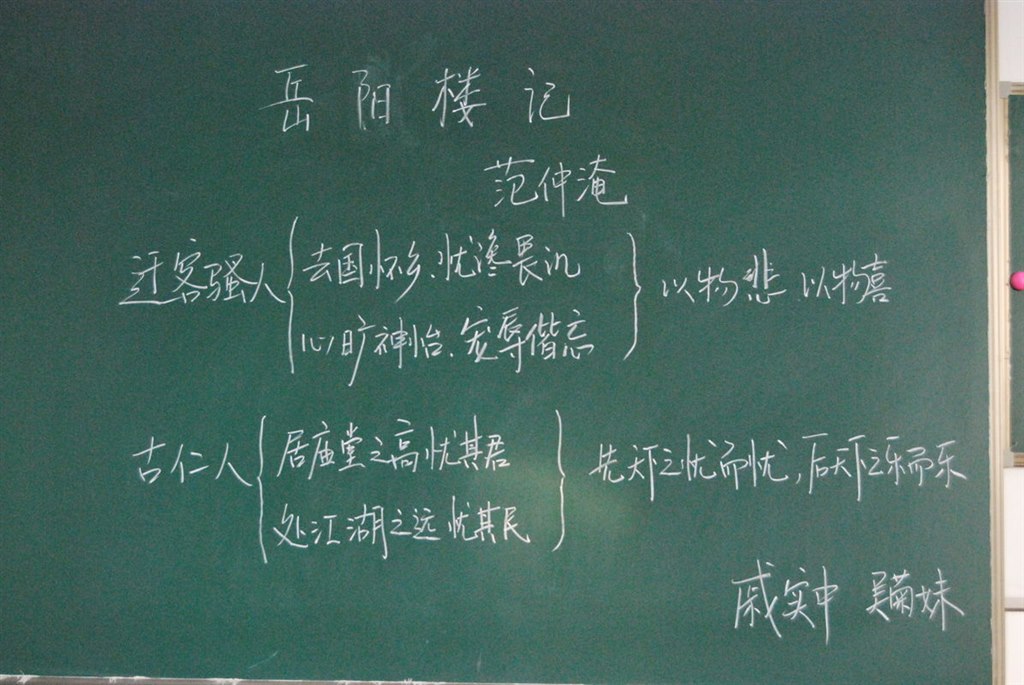 岳阳楼记
范仲淹
迁客骚人
去国怀乡、忧谗畏讥
心旷神怡、宠辱偕忘
以物悲 以物喜
古仁人
居庙堂之高忧其君
处江湖之远忧其民
先天下之忧而忧,后天下之乐而乐
戚实中 吴菊妹